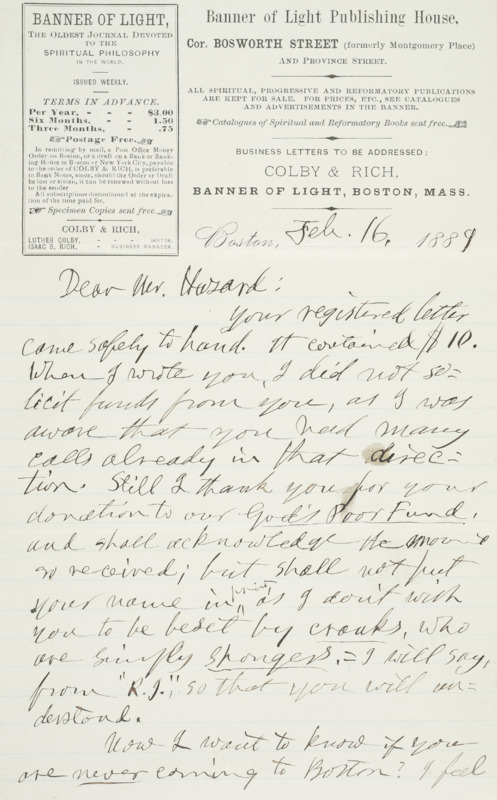 BANNER OF LIGHT,
THE OLDEST JOURNAL DEVOTED
TO THE
SPIRITUAL PHILOSOPHY
IN THE WORLD.
ISSUED WEEKLY.
TERMS IN ADVANCE.
Per Year, - - - $3.00
Six Months, - - 1.50
Three Months, - - .75
Postage Free.
In remitting by mail, a Post Office Money
Order on Boston, or a draft on a Bank or Bank-
ing House in Boston or New York City, payable
to the order of COLBY & RICH, is preferable
to Bank Notes, since, should the Order or Draft
be lost or stolen, it can be renewed without loss
to the sender
All subscriptions discontinued at the expira-
tion of the time paid for.
Specimen Copies sent free.
COLBY & RICH,
LUTHER COLBY, - - - EDITOR.
ISAAC B. RICH, - - BUSINESS MANAGER.
Banner of Light Publishing House,
Cor. BOSWORTH STREET (formerly Montgomery Place)
AND PROVINCE STREET.
ALL SPIRITUAL, PROGRESSIVE AND REFORMATORY PUBLICATIONS
ARE KEPT FOR SALE. FOR PRICES, ETC., SEE CATALOGUES
AND ADVERTISEMENTS IN THE BANNER.
Catalogues of Spiritual and Reformatory Books sent free.
BUSINESS LETTERS TO BE ADDRESSED:
COLBY & RICH,
BANNER OF LIGHT, BOSTON, MASS.
Boston, Feb. 16, 1889
Dear Mr. Hazard:
Your registered letter
came safely to hand. It contained $10.
When I wrote you, I did not so-
licit funds from you, as I was
aware that you had many
calls already in that direc-
tion. Still I thank you for your
donation to our God's Poor Fund,
and shall acknowledge the
so received; but shall not put
your name in print, as I don't wish
you to be beset by cranks, who
are simply spongers. = I will say,
from "R.I.", so that you will un-
derstand.
Now I want to know if you
are never coming to Boston? I feel